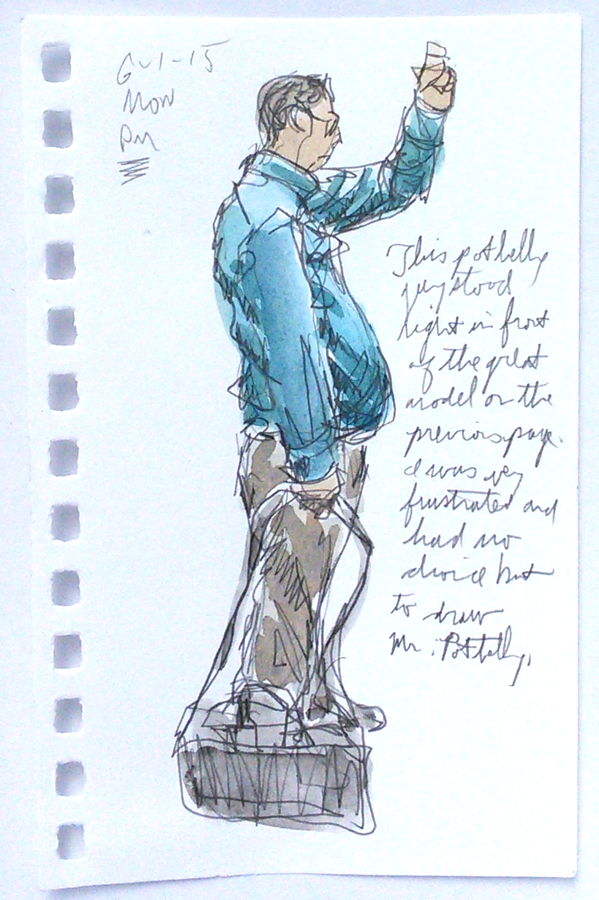 6-1-15
Mon
PM
This potbelly
guy stood
right in front
of the great
model on the
previous page.
I was very
frustrated and
had no
choice but
to draw
Mr. Potbelly.